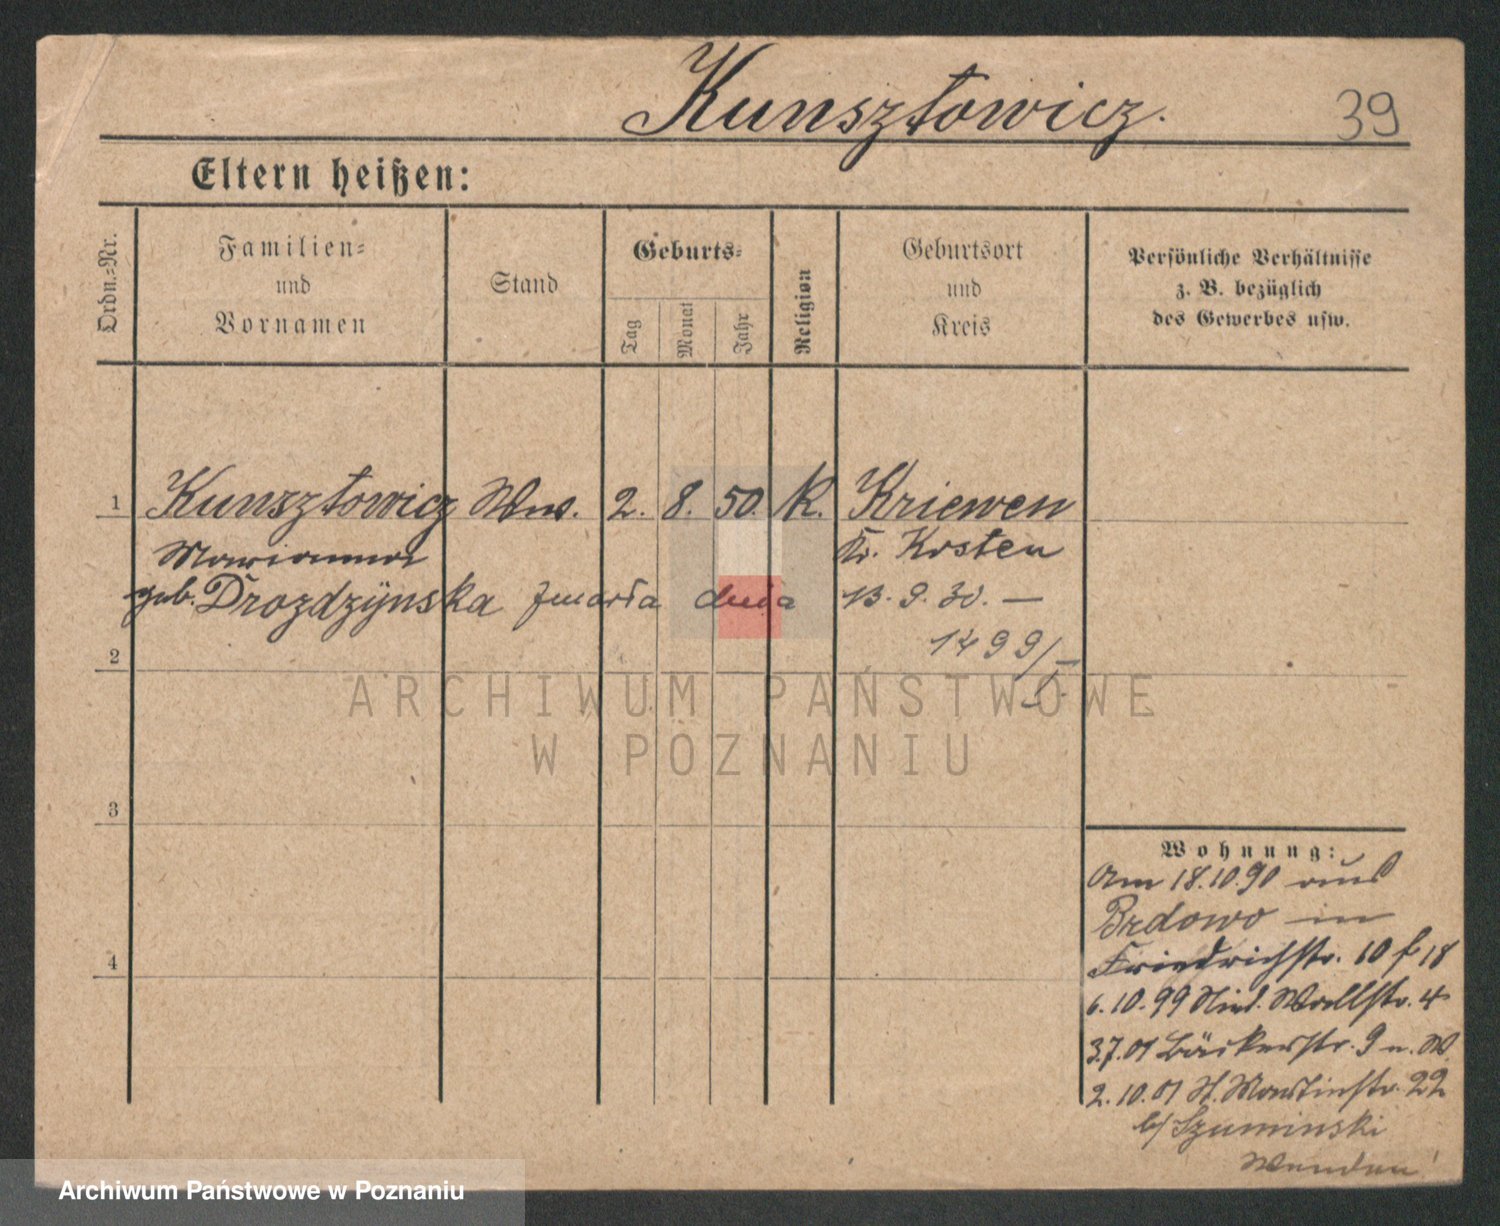 Kunsztowicz. 39
Eltern heißen:
Ordn.-Nr.
Familien-
und
Vornamen
Stand
Geburts-
Tag
Monat
Jahr
Religion
Geburtsort
und
Kreis
Persönliche Verhältnisse
z. B. bezüglich
des Gewerbes usw.
1 Kunsztowicz Ww. 2. 8. 50. K. Kriewen
Marianna Kr. Kosten
geb. Drozdzÿnska zmarła dnia 13.9.30. —
1499/
2
3
4
Wohnung:
Am 18.10.90 aus
Brdowo in
Friedrichstr. 10 f 18
6.10.99 Wallstr. 4
3.7.01 Bäckerstr. 9
2.10.01 St. Martinstr. 22
b/ Szuminski
ARCHIWUM PAŃSTWOWE
W POZNANIU
Archiwum Państwowe w Poznaniu